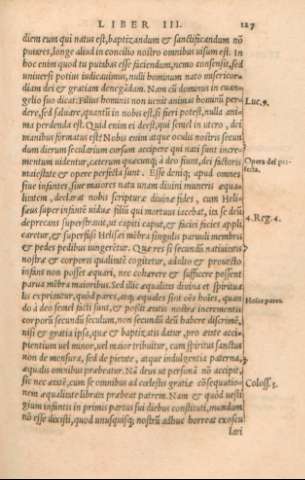 LIBER III. 127
diem eum qui natus est, baptizandum & sanctificandum nō
putares, longe aliud in concilio nostro omnibus uisum est. In
hoc enim quod tu putabas esse faciendum, nemo consensit, sed
uniuersi potius iudicauimus, nulli hominum nato misericor-
diam dei & gratiam denegādam. Nam cū dominus in euan-
gelio suo dicat: Filius hominis non uenit animas hominū per-
Luc. 9.
dere, sed saluare, quantū in nobis est, si fieri potest, nulla ani-
ma perdenda est. Quid enim ei deest, qui semel in utero, dei
manibus formatus est? Nobis enim atque oculis nostris secun
dum dierum secularium cursum accipere qui nati sunt incre-
mentum uidentur, cæterum quæcunq; à deo fiunt, dei factoris
Opera dei per-
fecta.
maiestate & opere perfecta sunt. Esse deniq; apud omnes
siue infantes, siue maiores natu unam diuini muneris æqua-
litatem, declarat nobis scripturæ diuinæ fides, cum Heli-
sæus super infantē uiduæ filiū qui mortuus iacebat, ita se deū
deprecans superstrauit, ut capiti caput, & faciei facies appli
4. Reg. 4.
caretur, & superfusi Helisæi mēbra singulis paruuli membris
& pedes pedibus iungerētur. Quæ res si secundū natiuitatis
nostræ & corporis qualitatē cogitetur, adulto & prouecto
infans non posset æquari, nec cohærere & sufficere possent
parua mēbra maioribus. Sed illic æqualitas diuina et spiritua
lis exprimitur, quòd pares, atq; æquales sint oēs hoīes, quan
Hoīes pares.
do à deo semel facti sunt, & possit ætas nostra incrementis
corporū secundū seculum, non secundū deū habere discrimē,
nisi & gratia ipsa, quæ & baptizatis datur, pro ætate acci-
pientium uel minor, uel maior tribuitur, cum spiritus sanctus
non de mensura, sed de pietate, atque indulgentia paterna,
æqualis omnibus præbeatur. Nā deus ut personā nō accipit,
sic nec ætatē, cum se omnibus ad cœlestis gratiæ cōsequatio-
Coloss. 3.
nem æqualitate librata præbeat patrem. Nam & quòd uesti
gium infantis in primis partus sui diebus constituti, mundum
nō esse dixisti, quod unusquisq; nostrū adhuc horreat exoscu
lari